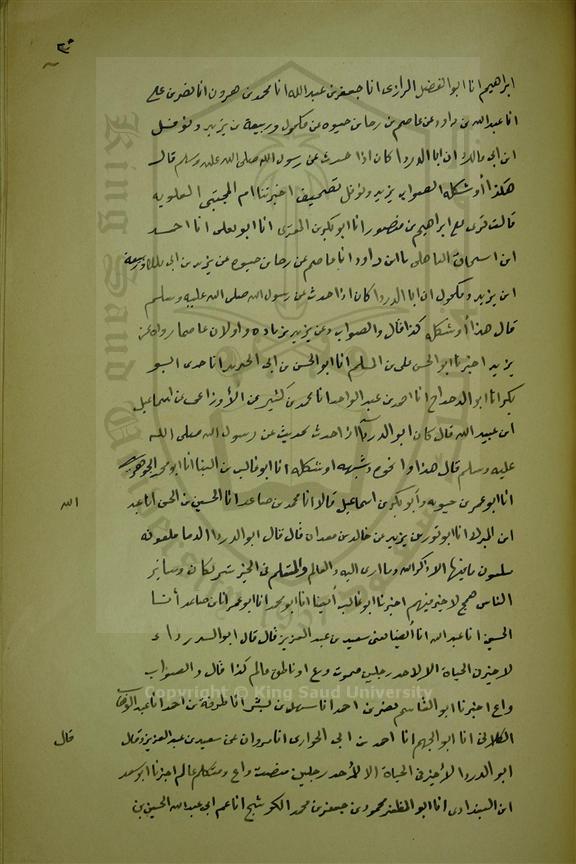 ابراهيم انا ابو الفضل الرازى انا جعفر بن عبد الله انا محمد بن هرون انا نصر بن على
انا عبد الله بن داود عن عاصم بن رجا بن حيوه عن مكحول وربيعة بن يزيد ونوفل
ابن ابى مالك ان ابا الدردا كان اذا حدث عن رسول الله صلى الله عليه وسلم قال
هكذا أو شكله الصواب يزيد ونوفل تصحيف اخبرتنا ام المجتبى العلويه
قالت قرى على ابراهيم بن منصور انا ابو بكر بن المقرى انا ابو يعلى انا احمد
ابن اسحاق الباهلى نا ابن داود انا عاصم عن رجا بن حيوه عن يزيد بن ابى مالك وربيعة
ابن يزيد ومكحول ان ابا الدردا كان اذا حدث عن رسول الله صلى الله عليه وسلم
قال هذا أو شكله كذا قال والصواب وعن يزيد بزياده واو لان عاصما رواه عن
يزيد اخبرنا ابو الحسن على بن المسلم انا ابو الحسن بن ابى الحديد انا جدى ابو
بكر انا ابو الدحداح انا احمد بن عبد الواحد انا محمد بن كثير عن الأوزاعى عن اسماعيل
ابن عبيد الله قال كان ابو الدردآ اذا حدث بحديث عن رسول الله صلى الله
عليه وسلم قال هذا او نحوه وشبهه او شكله انا ابو غالب بن البنا انا ابو محمد الجوهرى
انا ابو عمر بن حيويه وأبو بكر بن اسماعيل قالا انا محمد بن صاعد انا الحسين بن الحسن انا عبد
الله
ابن المبرك انا ابو ثور بن يزيد عن خالد بن معدان قال قال ابو الدردا الدنيا ملعونه
ملعون ما فيها الا ذكر الله وما ادى اليه والعالم والمتعلم فى الخير شريكان وسائر
الناس همج لا خير فيهم اخبرنا ابو غالب أيضا انا ابو محمد انا ابو عمر انا بن صاعد أنا
الحسين انا عبد الله انا سعيد بن عبد العزيز قال قال ابو الدرداء
لا خير فى الحياة الا لاحد رجلين صموت وع او ناطق عالم كذا قال والصواب
واع اخبرنا ابو القاسم نصر بن احمد انا سهل بن بشر انا طرفة بن احمد انا عبد الوهاب
الكلابى انا ابو الجهم انا احمد بن ابى الحوارى انا مروان عن سعيد بن عبد العزيز وقال
قال
ابو الدردا لا خير فى الحياة الا لأحد رجلين منصت واع ومتكلم عالم اخبرنا ابو سعد
ابن البغدادى انا ابو المظفر محمود بن جعفر بن محمد الكوسج انا عم ابى عبد الله الحسين بن
Copyright © King Saud University
King Saud University